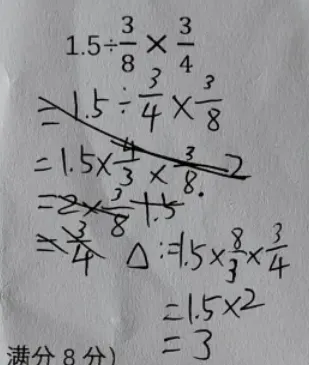 1.5÷3/8×3/4
=1.5÷3/4×3/8
=1.5×4/3×3/8.2
=2×3/8 1.5
=3/4
△:=1.5×8/3×3/4
=1.5×2
=3
满分8分)